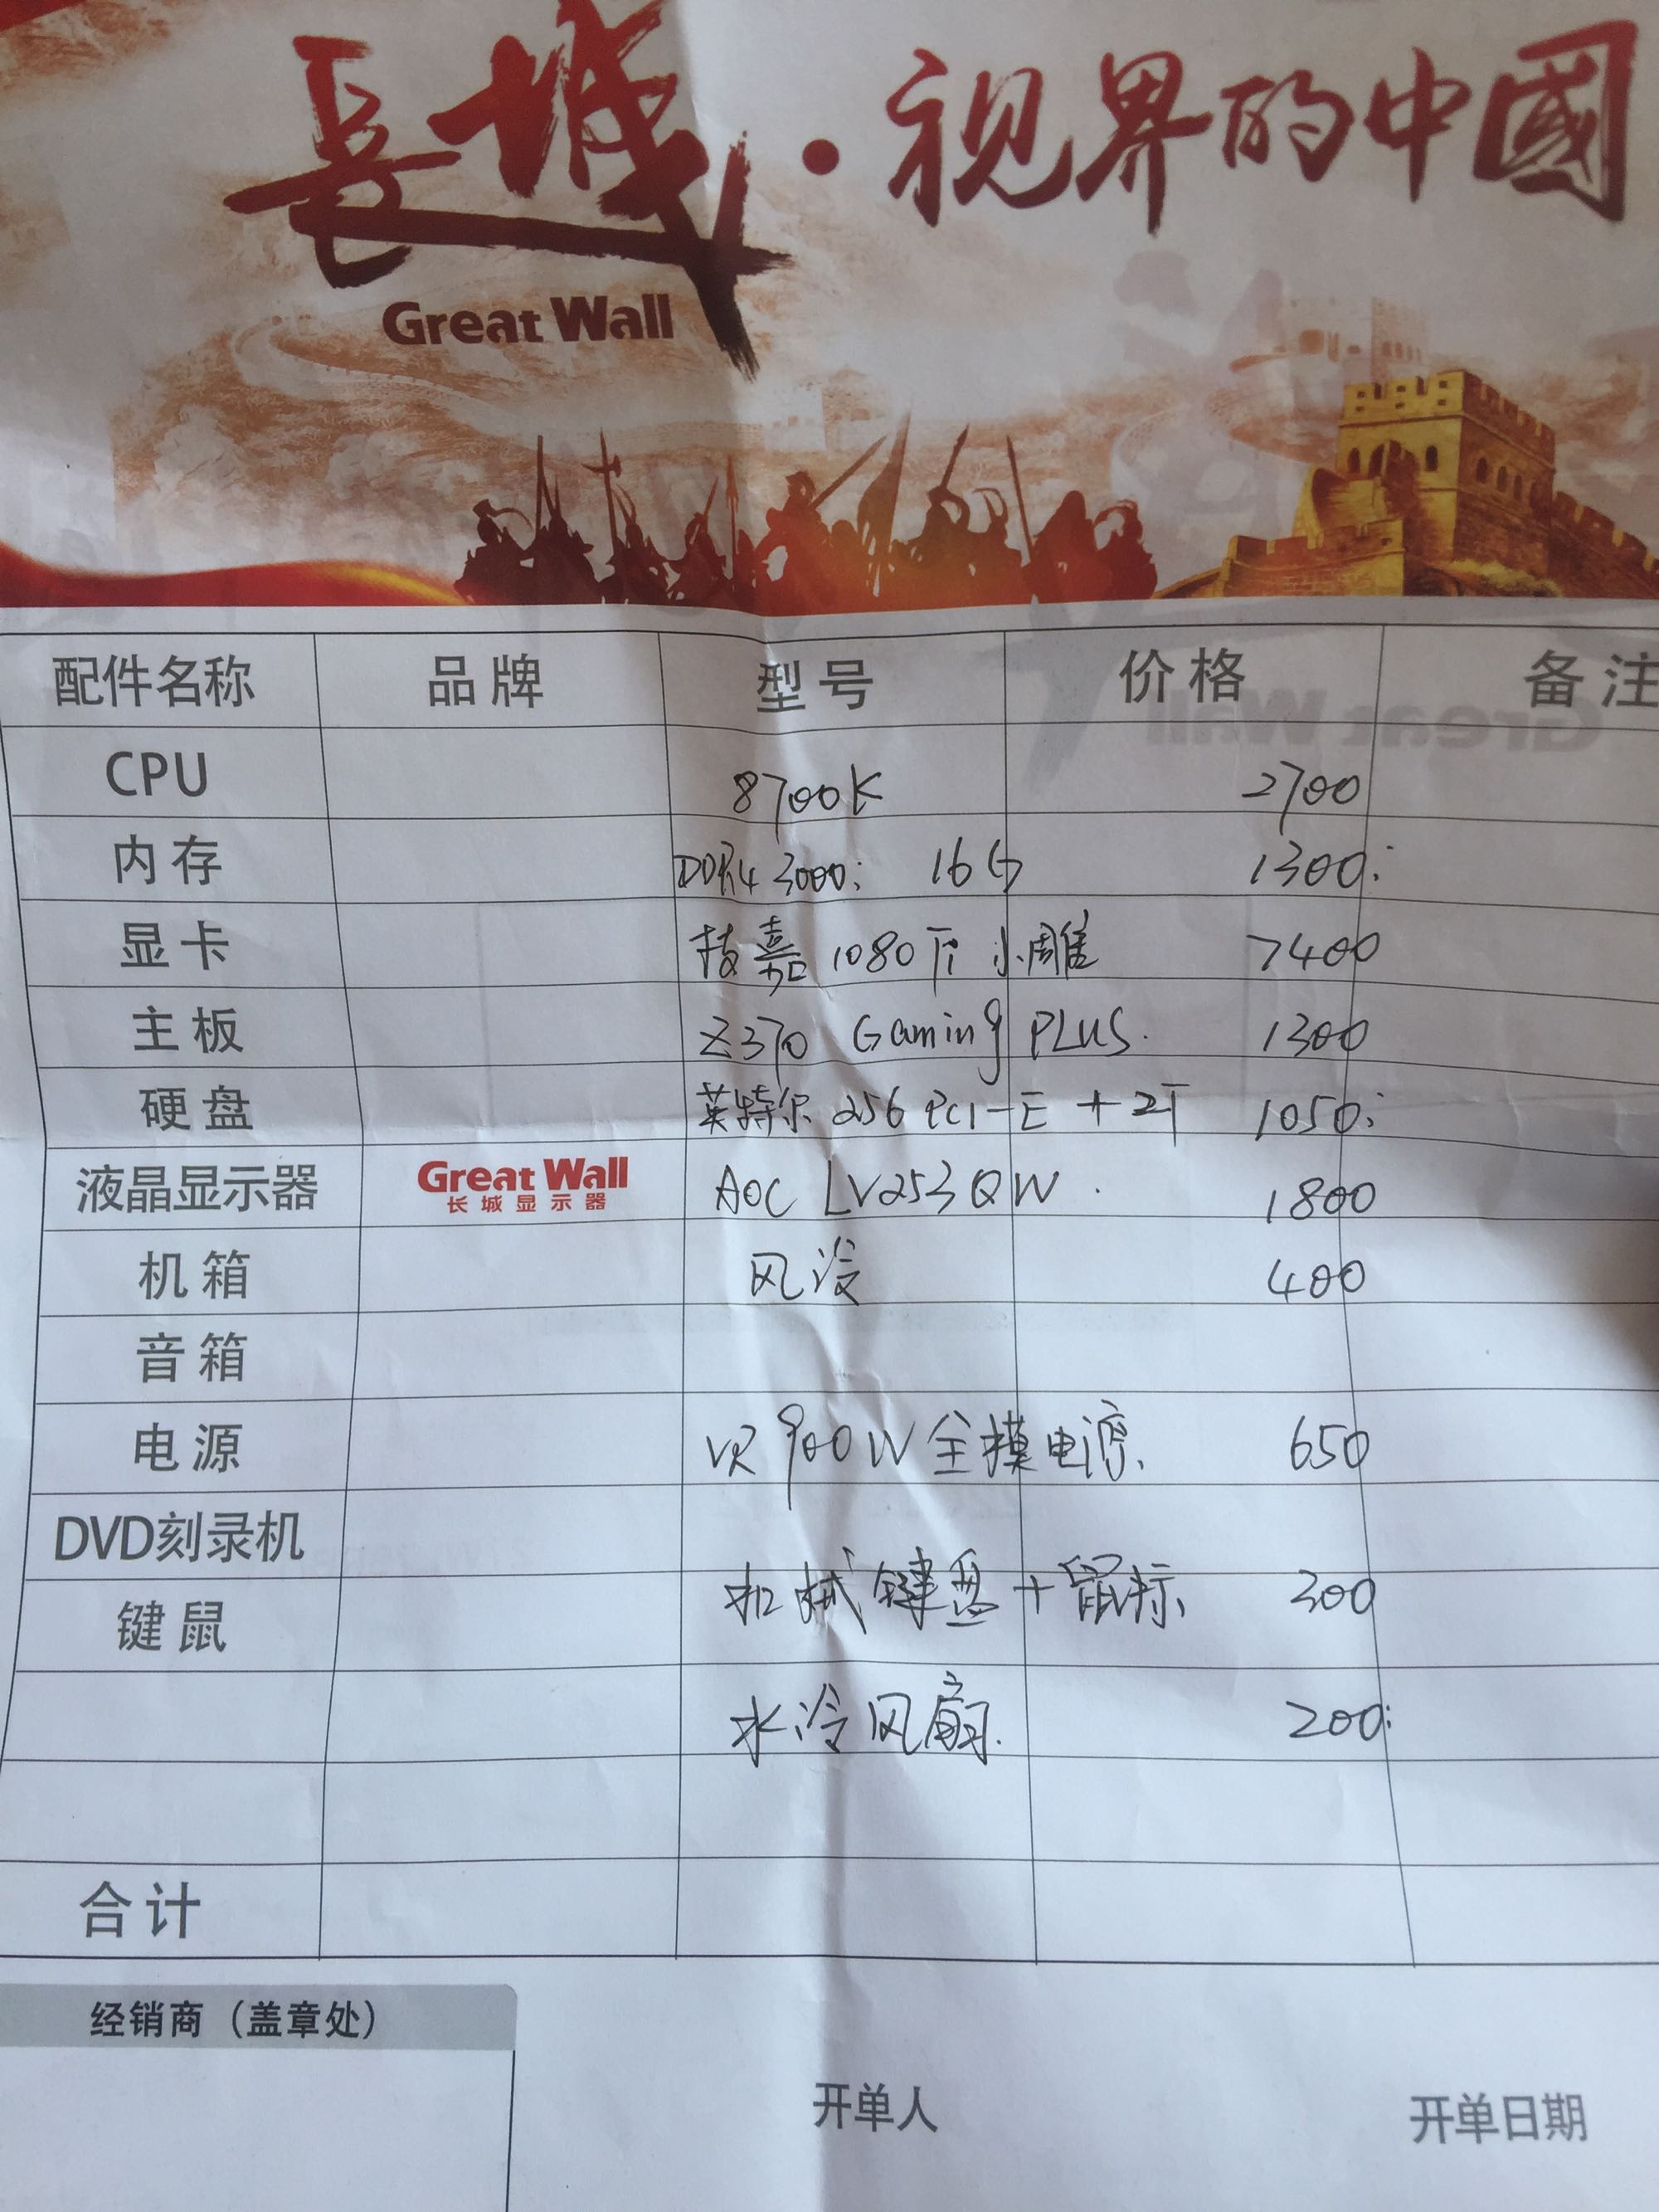 长城·视界的中國
Great Wall
配件名称 品牌 型号 价格 备注
CPU 8700K 2700
内存 DDR4 3000 16G 1300
显卡 技嘉 1080Ti 小雕 7400
主板 Z370 Gaming PLUS. 1300
硬盘 英特尔 256 PCI-E + 2T 1050
液晶显示器 Great Wall AOC LV253QW 1800
长城显示器
机箱 风冷 400
音箱
电源 VR 900W 全模电源 650
DVD刻录机
键鼠 机械键盘+鼠标 300
水冷风扇. 200
合计
经销商（盖章处）
开单人 开单日期